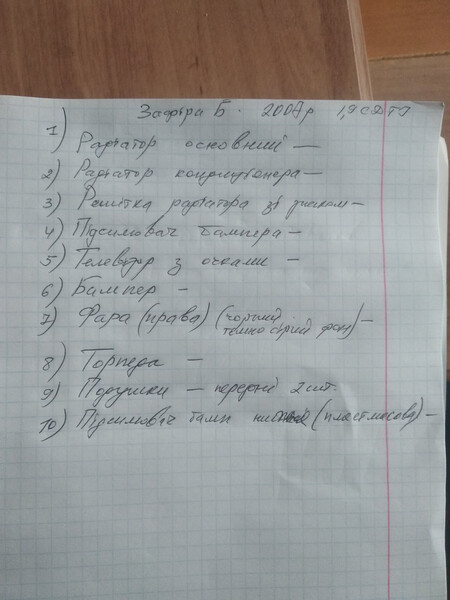 Зафіра Б. 2007р 1,9 CDTI
1) Радіатор основний —
2) Радіатор кондиціонера —
3) Решітка радіатора зі значком —
4) Підсилювач бампера —
5) Телевізор з очками —
6) Бампер —
7) Фара (права) (чорний темно сірий фон) —
8) Торпеда —
9) Подушки — передні 2 шт.
10) Підсилювач бамп (пластмасова) —